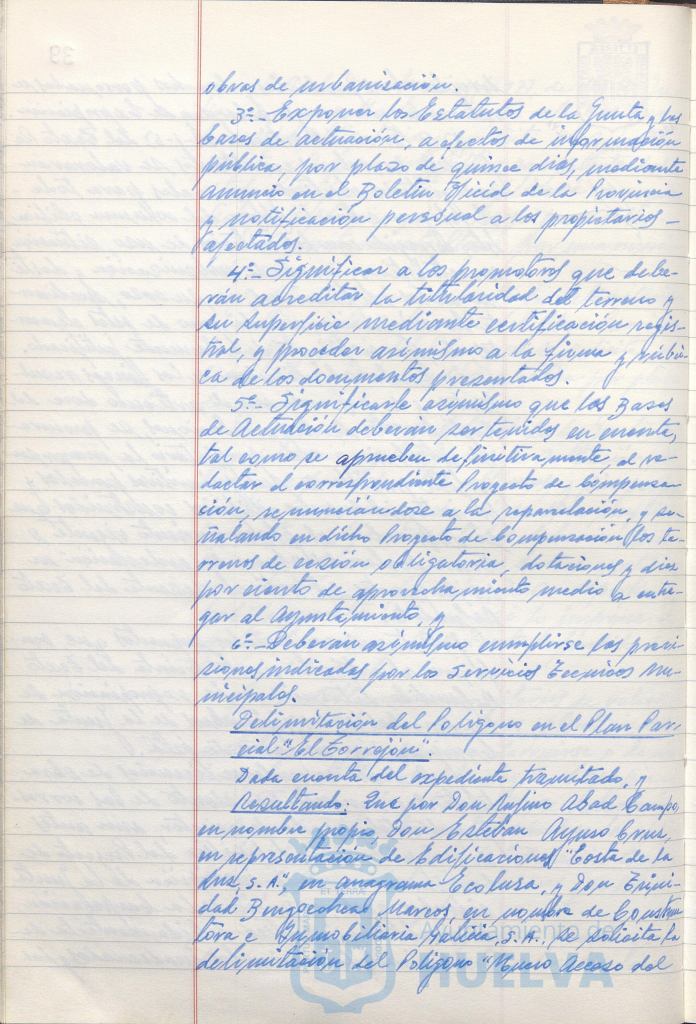 obras de urbanización.
3º.- Exponer los Estatutos de la Junta y las
Bases de actuación, a efectos de información
pública, por plazo de quince días, mediante
anuncio en el Boletín Oficial de la Provincia
y notificación personal a los propietarios -
afectados.
4º.- Significar a los promotores que debe-
rán acreditar la titularidad del terreno y
su superficie mediante certificación regis-
tral, y proceder asimismo a la firma y rúbri-
ca de los documentos presentados.
5º.- Significarle asimismo que las Bases
de Actuación deberán ser tenidos en cuenta,
tal como se aprueben definitivamente, al re-
dactar el correspondiente Proyecto de Compensa-
ción, renunciándose a la reparcelación, y se-
ñalando en dicho Proyecto de Compensación los te-
rrenos de cesión obligatoria, dotaciones y diez
por ciento de aprovechamiento medio a entre-
gar al Ayuntamiento, y
6º.- Deberán asimismo cumplirse las previ-
siones indicadas por los Servicios Técnicos Mu-
nicipales.
Delimitación del Polígono en el Plan Par-
cial "El Torrejón".
Dada cuenta del expediente tramitado, y
Resultando: Que por Don Rufino Abad Campo,
en nombre propio, Don Esteban Ayuso Cruz,
en representación de Edificaciones "Costa de la
Luz, S.A.", en anagrama Ecolusa, y Don Trini-
dad Bengoechea Marcos, en nombre de Construc-
tora e Inmobiliaria Galicia, S.A., se solicita la
delimitación del Polígono "Nuevo Acceso del
Ayuntamiento de
HUELVA
39